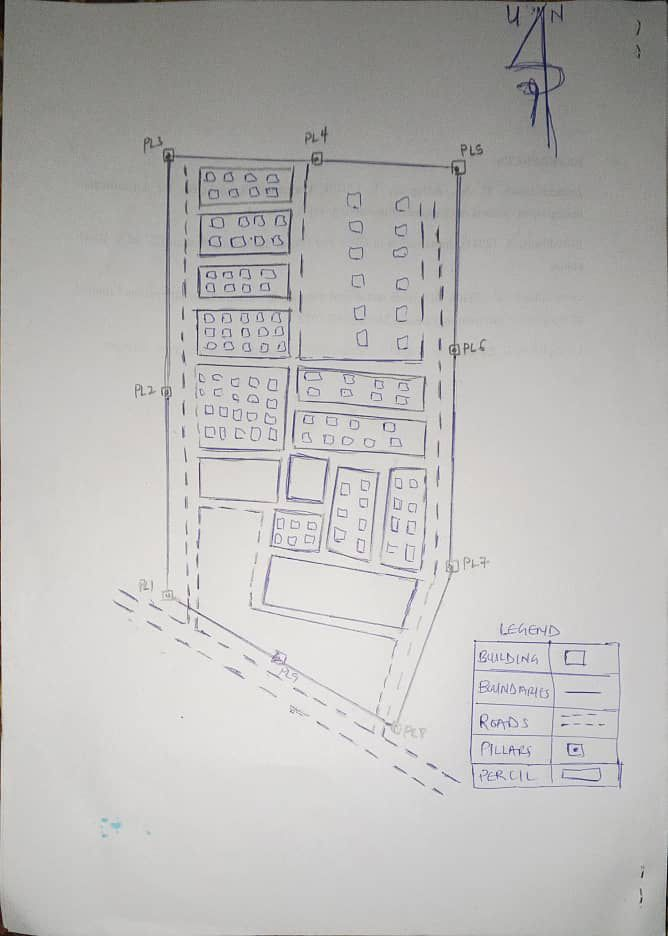 U N
PL3
PL4
PL5
PL6
PL2
PL7
PL1
PL9
PL8
LEGEND
BUILDING
BOUNDARIES
ROADS
PILLARS
PERCIL